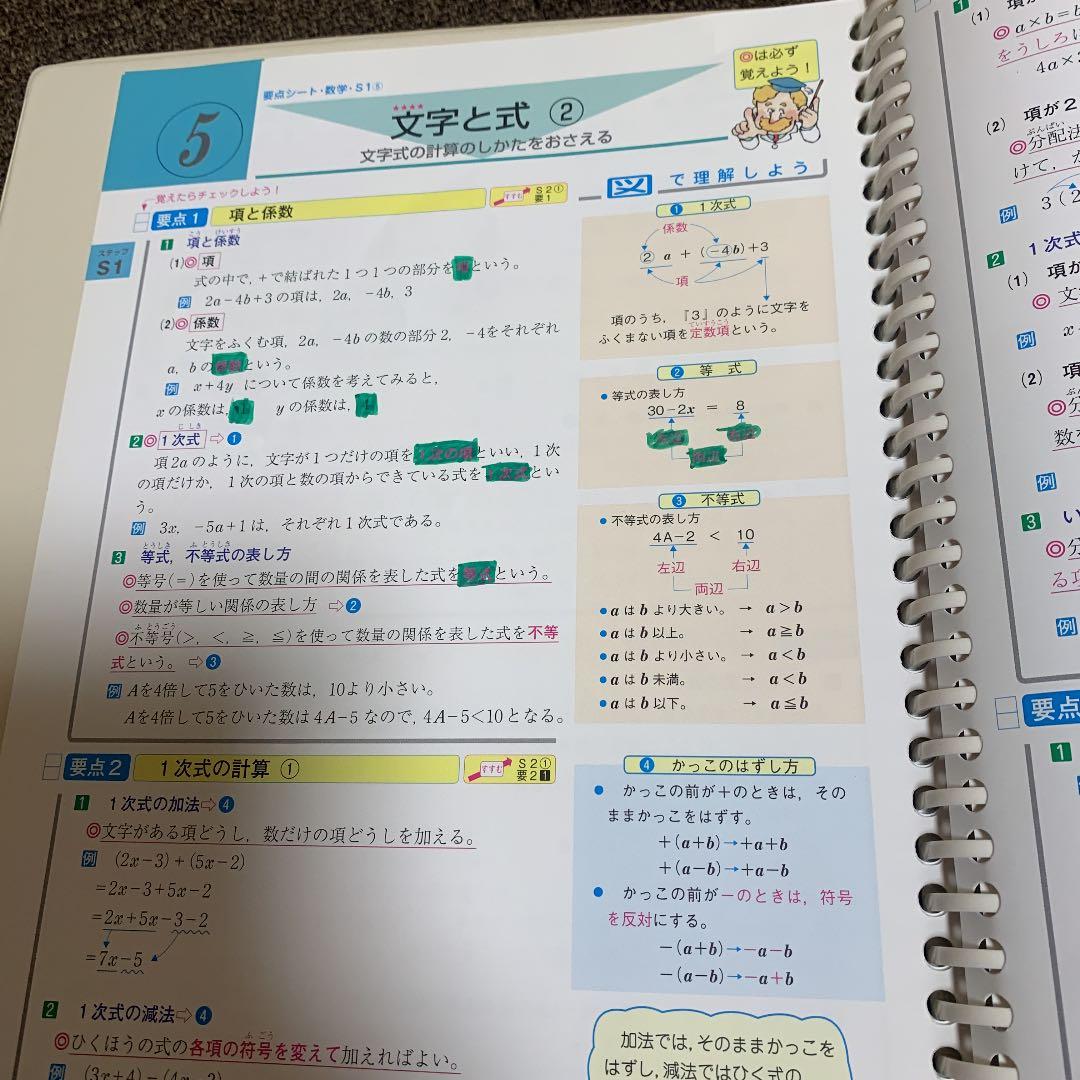 5
要点シート・数学・S1⑤
文字と式 ②
文字式の計算のしかたをおさえる
◎は必ず
覚えよう！
覚えたらチェックしよう！
要点1 項と係数
すすむ S2① 要1
ステップ
S1
1 項と係数
(1)◎項
式の中で，＋で結ばれた1つ1つの部分を項という。
例 2a－4b＋3の項は，2a，－4b，3
(2)◎係数
文字をふくむ項，2a，－4bの数の部分2，－4をそれぞれ
a，bの係数という。
例 x＋4y について係数を考えてみると，
xの係数は，1 yの係数は，4
2◎1次式⇨❶
項2aのように，文字が1つだけの項を1次の項といい，1次
の項だけか，1次の項と数の項からできている式を1次式とい
う。
例 3x，－5a＋1は，それぞれ1次式である。
3 等式，不等式の表し方
◎等号(＝)を使って数量の間の関係を表した式を等式という。
◎数量が等しい関係の表し方 ⇨❷
◎不等号(＞，＜，≧，≦)を使って数量の関係を表した式を不等
式という。 ⇨❸
例 Aを4倍して5をひいた数は，10より小さい。
Aを4倍して5をひいた数は4A－5なので，4A－5＜10となる。
図で理解しよう
❶ 1次式
係数
2a＋(－4b)＋3
項
項のうち，『3』のように文字を
ふくまない項を定数項という。
❷ 等式
●等式の表し方
30－2x ＝ 8
左辺 右辺
両辺
❸ 不等式
●不等式の表し方
4A－2 ＜ 10
左辺 右辺
両辺
●aはbより大きい。 → a＞b
●aはb以上。 → a≧b
●aはbより小さい。 → a＜b
●aはb未満。 → a＜b
●aはb以下。 → a≦b
要点2 1次式の計算 ①
すすむ S2① 要2 1
1 1次式の加法⇨❹
◎文字がある項どうし，数だけの項どうしを加える。
例 (2x－3)＋(5x－2)
＝2x－3＋5x－2
＝2x＋5x－3－2
＝7x－5
2 1次式の減法⇨❹
◎ひくほうの式の各項の符号を変えて加えればよい。
例 (3x＋4)－(4x－2)
❹ かっこのはずし方
● かっこの前が＋のときは，その
ままかっこをはずす。
＋(a＋b)→＋a＋b
＋(a－b)→＋a－b
● かっこの前が－のときは，符号
を反対にする。
－(a＋b)→－a－b
－(a－b)→－a＋b
加法では，そのままかっこを
はずし，減法ではひく式の
1
(1)
◎a×b＝b
をうしろに
4a×
(2) 項が2
◎分配法
けて，か
例 3(2
2 1次式
(1) 項が
◎文
例 x
(2) 項
◎分
数を
例
3 い
◎分
る項
例
要点
1